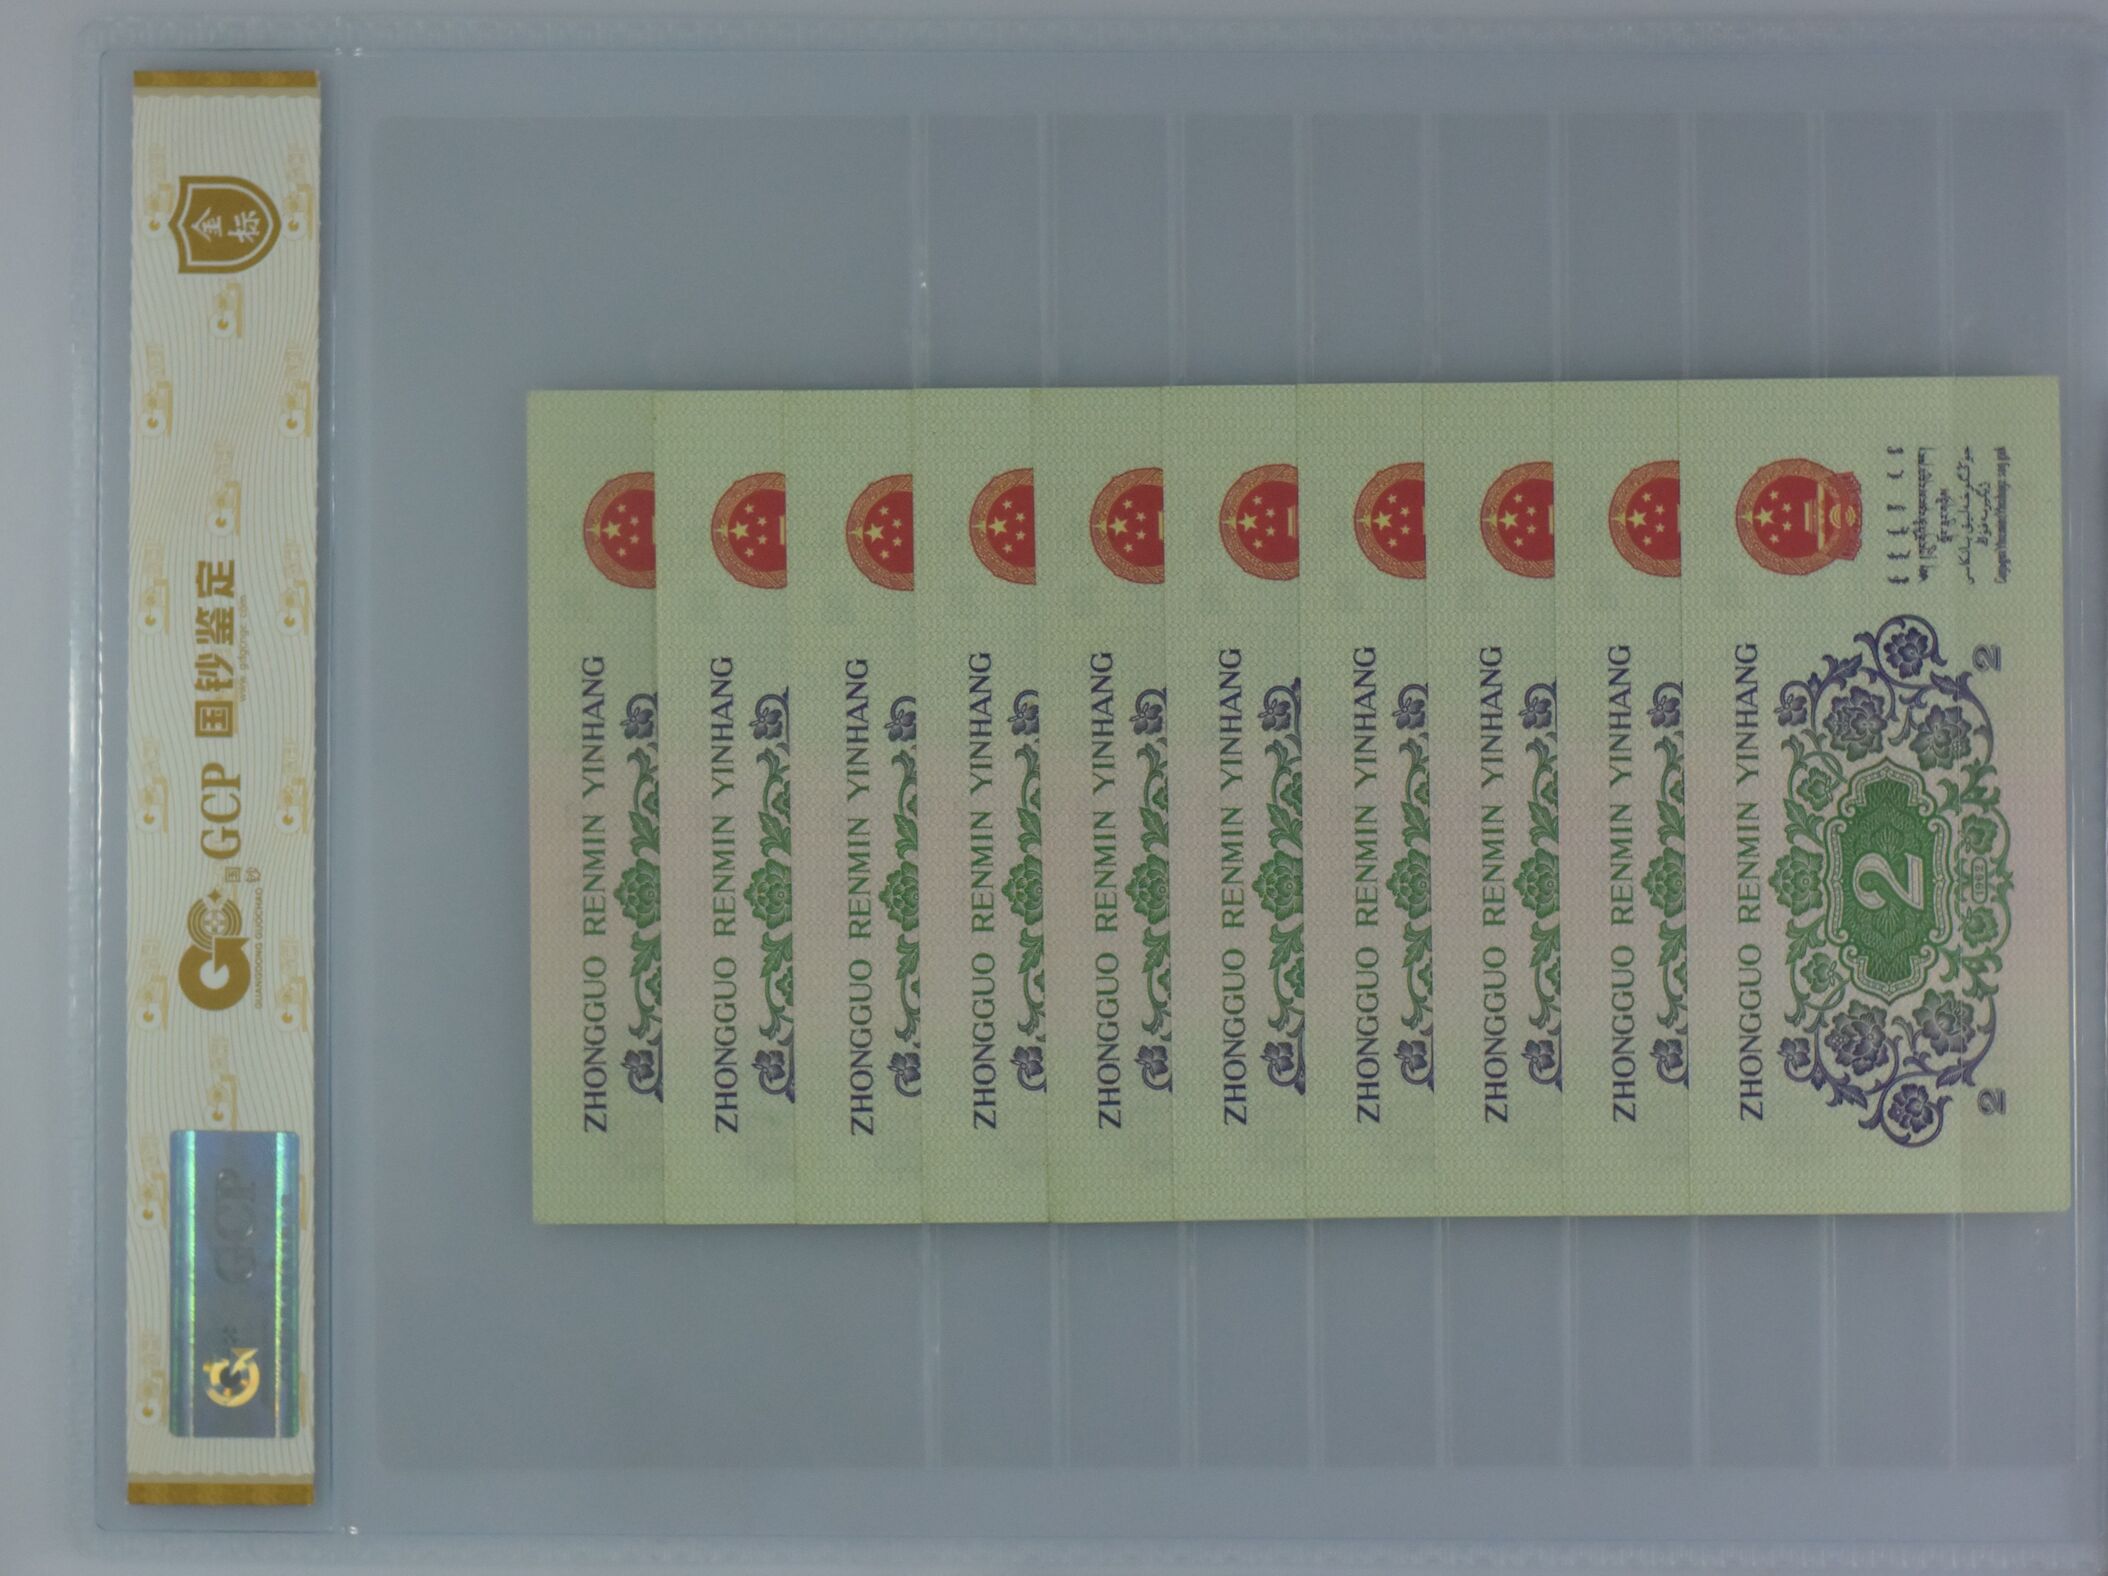 金标
GCP 国钞鉴定
www.gdgcngc.com
国钞
GUANGDONG GUOCHAO
GCP
ZHONGGUO RENMIN YINHANG
ZHONGGUO RENMIN YINHANG
ZHONGGUO RENMIN YINHANG
ZHONGGUO RENMIN YINHANG
ZHONGGUO RENMIN YINHANG
ZHONGGUO RENMIN YINHANG
ZHONGGUO RENMIN YINHANG
ZHONGGUO RENMIN YINHANG
ZHONGGUO RENMIN YINHANG
ZHONGGUO RENMIN YINHANG
2
1962
2 2